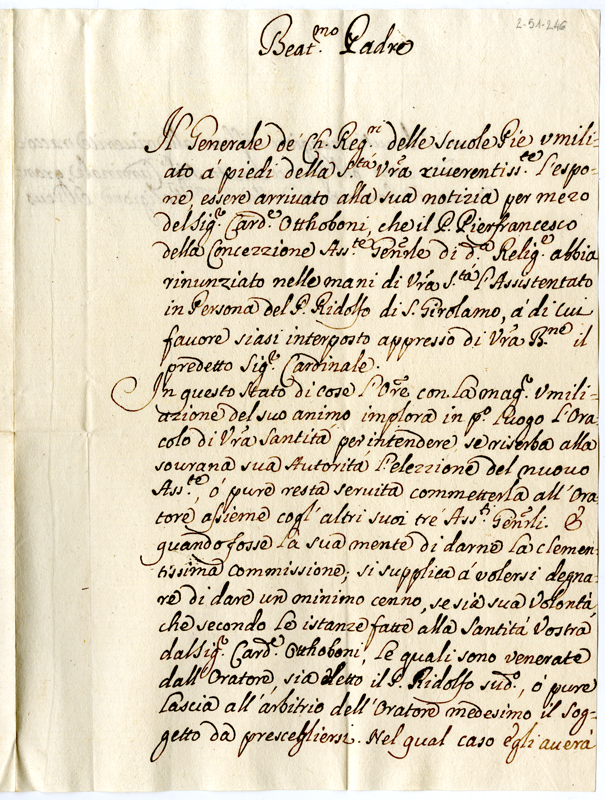 2-51-246
Beat.mo Padre
Il Generale de' Ch. Reg.ri delle Scuole Pie umili-
ato á piedi della S.tá Vr̃a riverentiss.te l'espo-
ne, essere arrivato alla sua notizia per mezo
del Sig.r Card.e Otthoboni, che il P. Pierfrancesco
della Concezzione Ass.te Gen̄rle di d.a Relig.e abbia
rinunziato nelle mani di Vr̃a S.tá l'Assistentato
in Persona del P. Ridolfo di S. Girolamo, á di cui
favore siasi interposto appresso di Vr̃a B.ne il
predetto Sig.r Cardinale.
In questo stato di cose l'Ore, con la mag.r umili-
azione del suo animo implora in p.o luogo l'Ora-
colo di Vr̃a Santitá per intendere se riserba alla
sourana sua Autoritá l'elezzione del nuovo
Ass.te, ó pure resta servita commetterla all'Ora-
tore assieme cogl'altri suoi tré Ass.ti Gen̄rli. E
quando fosse la sua mente di darne la clemen-
tissima commissione; si supplica á volersi degna-
re di dare un minimo cenno, se sia sua Volontá,
che secondo le istanze fatte alla Santitá Vostra
dal Sig.r Card.e Otthoboni, le quali sono venerate
dall'Oratore, sia eletto il P. Ridolfo sud.o, ó pure
lascia all'arbitrio dell'Oratore medesimo il Sog-
getto da prescegliersi. Nel qual caso egli averá